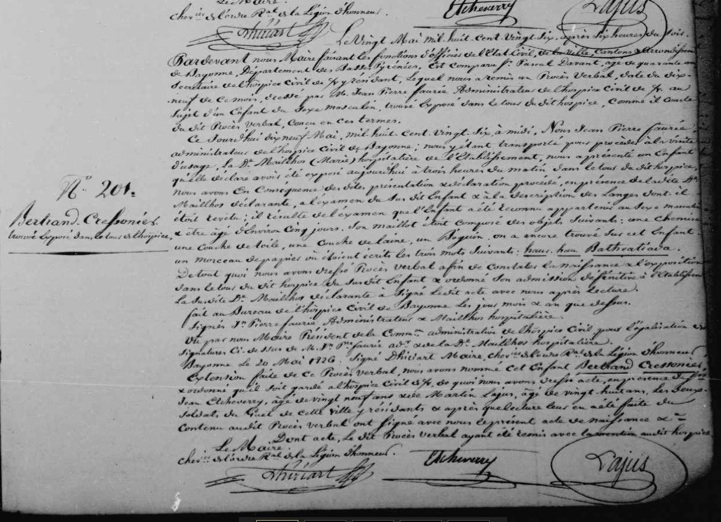 Le Maire.
Cher. de l'ordre Ral. de la Légion d'honneur.
Dhiriart
Etcheverry
Lajus
Le Vingt Mai mil huit cent Vingt Six, après Six heures du Soir,
Pardevant nous Maire faisant les fonctions d'officier de l'Etat Civil, de la Ville, Canton &
de Bayonne, Département des Basses Pyrénées, Est comparu Sr. Pascal age de quarante
Secrétaire de l'hospice Civil de y résidant, lequel nous a remis un Procès Verbal, daté du dix
neuf de ce mois, dressé par Mr. Jean Pierre Faurie Administrateur de l'hospice Civil de au
Sujet d'un Enfant du Sexe masculin, trouvé Exposé dans le tour du dit hospice, comme il conste
du dit Procès verbal, conçu en ces termes.
Ce Jourd'hui dix neuf Mai, mil huit cent Vingt Six, à midi, Nous Jean Pierre Faurie
administrateur de l'hospice Civil de Bayonne; nous y étant transporté pour procéder à la visite
d'usage, la De. Mailhos (Marie) hospitalière de l'Etablissement, nous a présenté un Enfant
qu'elle déclare avoir été exposé aujourd'hui à trois heures du matin dans le tour du dit hospice,
Nous avons En Conséquence des dites présentation & déclaration procédé, en présence de la dite De.
Mailhos déclarante, à l'examen du Sus dit Enfant & à la description des Langes dont il
était revêtu; il résulte de l'examen que l'Enfant a été reconnu appartenir au Sexe masculin
& être âgé d'Environ Cinq jours. Son maillot était composé des objets Suivants: une Chemise
une Couche de toile, une Couche de laine, un Béguin, on a encore trouvé Sur cet Enfant
un morceau de papier où étaient écrits les trois mots Suivants:
De tout quoi nous avons dressé Procès verbal afin de Constater la naissance & l'exposition
dans le tour du dit hospice du Sus dit Enfant & ordonné Son admission définitive à l'Etablissement
La Susdite De. Mailhos déclarante a Signé le dit acte avec nous après lecture.
fait au Bureau de l'hospice Civil de Bayonne les jour mois & an que dessus.
Signés Jn. Pierre Faurie, Administrateur & Mailhos hospitalière.
Vu par nous Maire Président de la Common. administrative de l'hospice Civil pour légalisation des
Signatures Ci dessus de Mr. Jn. Pre. Faurie adr. & de la De. Mailhos hospitalière.
Bayonne le 20 Mai 1826. Signé Dhiriart Maire, cher. de l'ordre Ral. de la Légion d'honneur
faite de ce Procès verbal, nous avons nommé cet Enfant Bertrand Cressonier
& ordonné qu'il Soit gardé à l'hospice Civil de quoi nous avons dressé acte, en présence de Srs.
Jean Etcheverry, âge de vingt neuf ans & de Martin Lajus, âge de vingt huit ans, les deux
Soldats du Guet de cette ville y résidants & après que lecture leur en a été faite du
Contenu audit Procès verbal ont Signé avec nous le présent acte de naissance &
Dont acte, le dit Procès verbal ayant été remis
Le Maire.
cher. de l'ordre Ral. de la Légion d'honneur.
Dhiriart
Etcheverry
Lajus
No. 201.
Bertrand Cressonier
trouvé Exposé dans le tour de l'hospice.